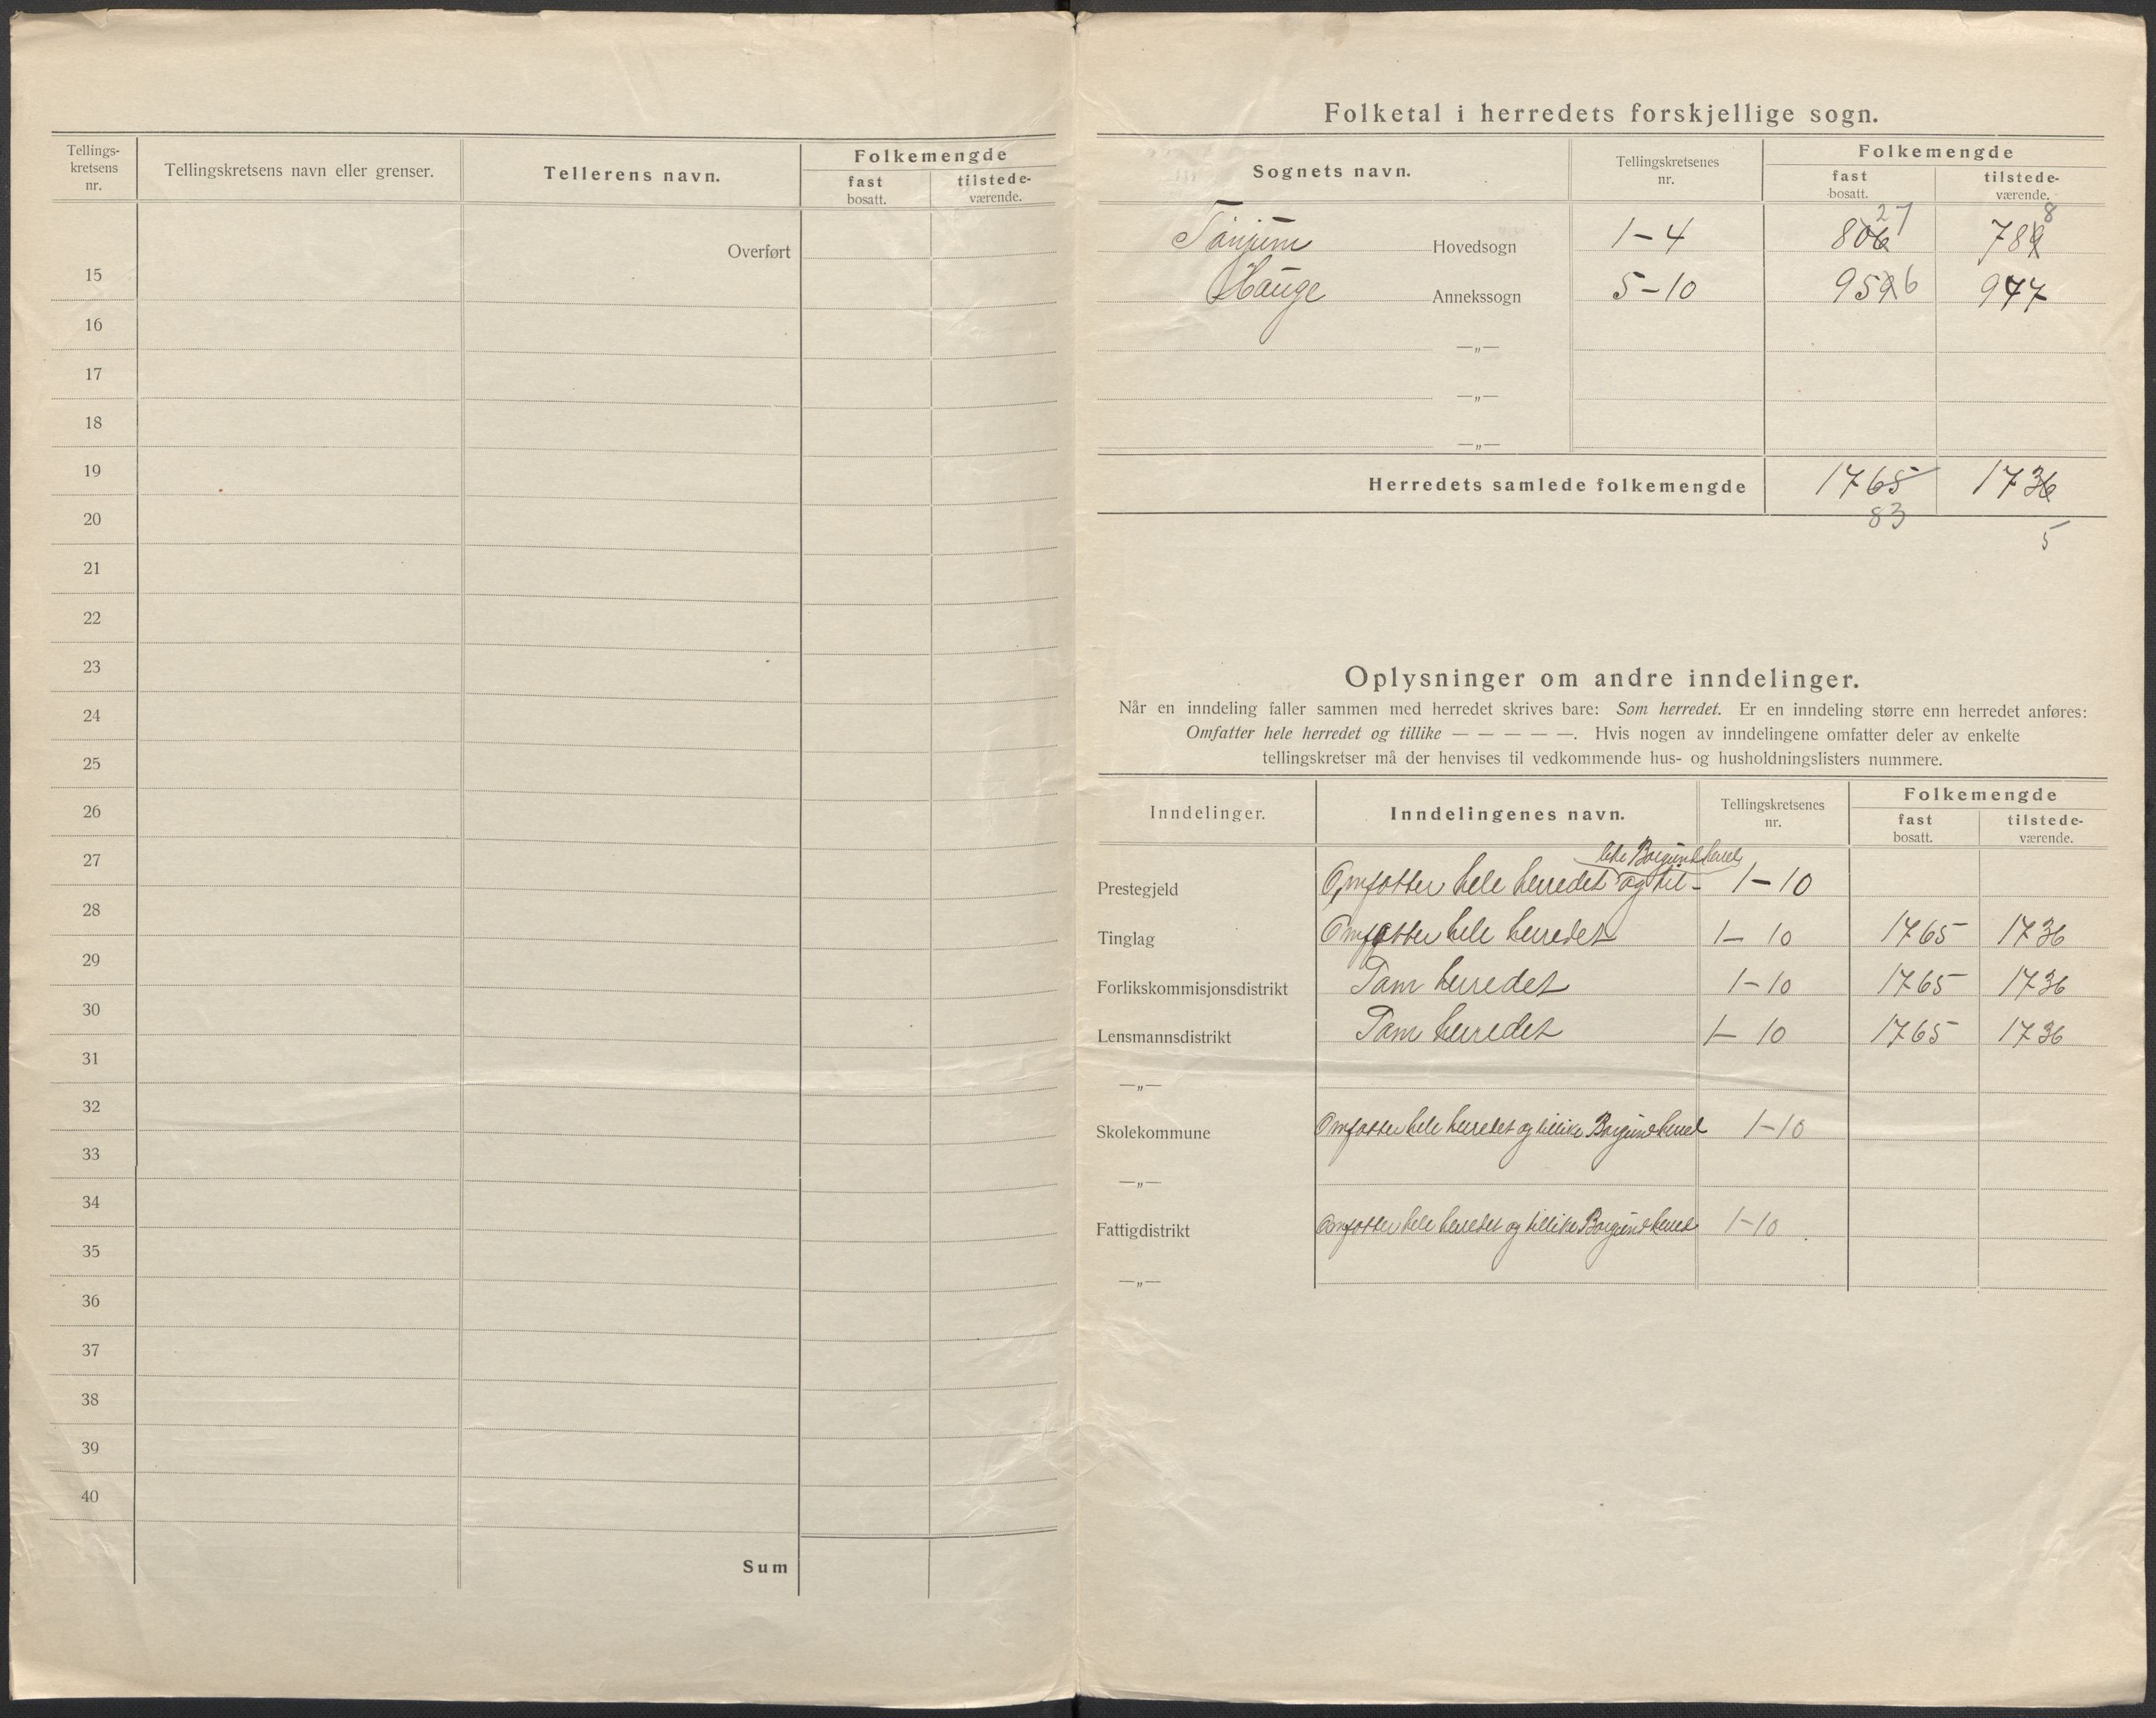 Tellings-
kretsens
nr.
Tellingskretsens navn eller grenser.
Tellerens navn.
Folkemengde
fast
bosatt.
tilstede-
værende.
Overført
15
16
17
18
19
20
21
22
23
24
25
26
27
28
29
30
31
32
33
34
35
36
37
38
39
40
Sum
Folketal i herredets forskjellige sogn.
Sognets navn.
Tellingskretsenes
nr.
Folkemengde
fast
bosatt.
tilstede-
værende.
27 8
Tønjum Hovedsogn 1-4 806 789
Hauge Annekssogn 5-10 959 6 947
—„—
—„—
—„—
Herredets samlede folkemengde 1765 1736
83 5
Oplysninger om andre inndelinger.
Når en inndeling faller sammen med herredet skrives bare: Som herredet. Er en inndeling større enn herredet anføres:
Omfatter hele herredet og tillike — — — — —. Hvis nogen av inndelingene omfatter deler av enkelte
tellingskretser må der henvises til vedkommende hus- og husholdningslisters nummere.
Inndelinger.
Inndelingenes navn.
Tellingskretsenes
nr.
Folkemengde
fast
bosatt.
tilstede-
værende.
like Borgund herred
Prestegjeld Omfatter hele herredet og til- 1-10
Tinglag Omfatter hele herredet 1-10 1765 1736
Forlikskommisjonsdistrikt Som herredet 1-10 1765 1736
Lensmannsdistrikt Som herredet 1-10 1765 1736
—„—
Skolekommune Omfatter hele herredet og tillike Borgund herred 1-10
—„—
Fattigdistrikt Omfatter hele herredet og tillike Borgund herred 1-10
—„—